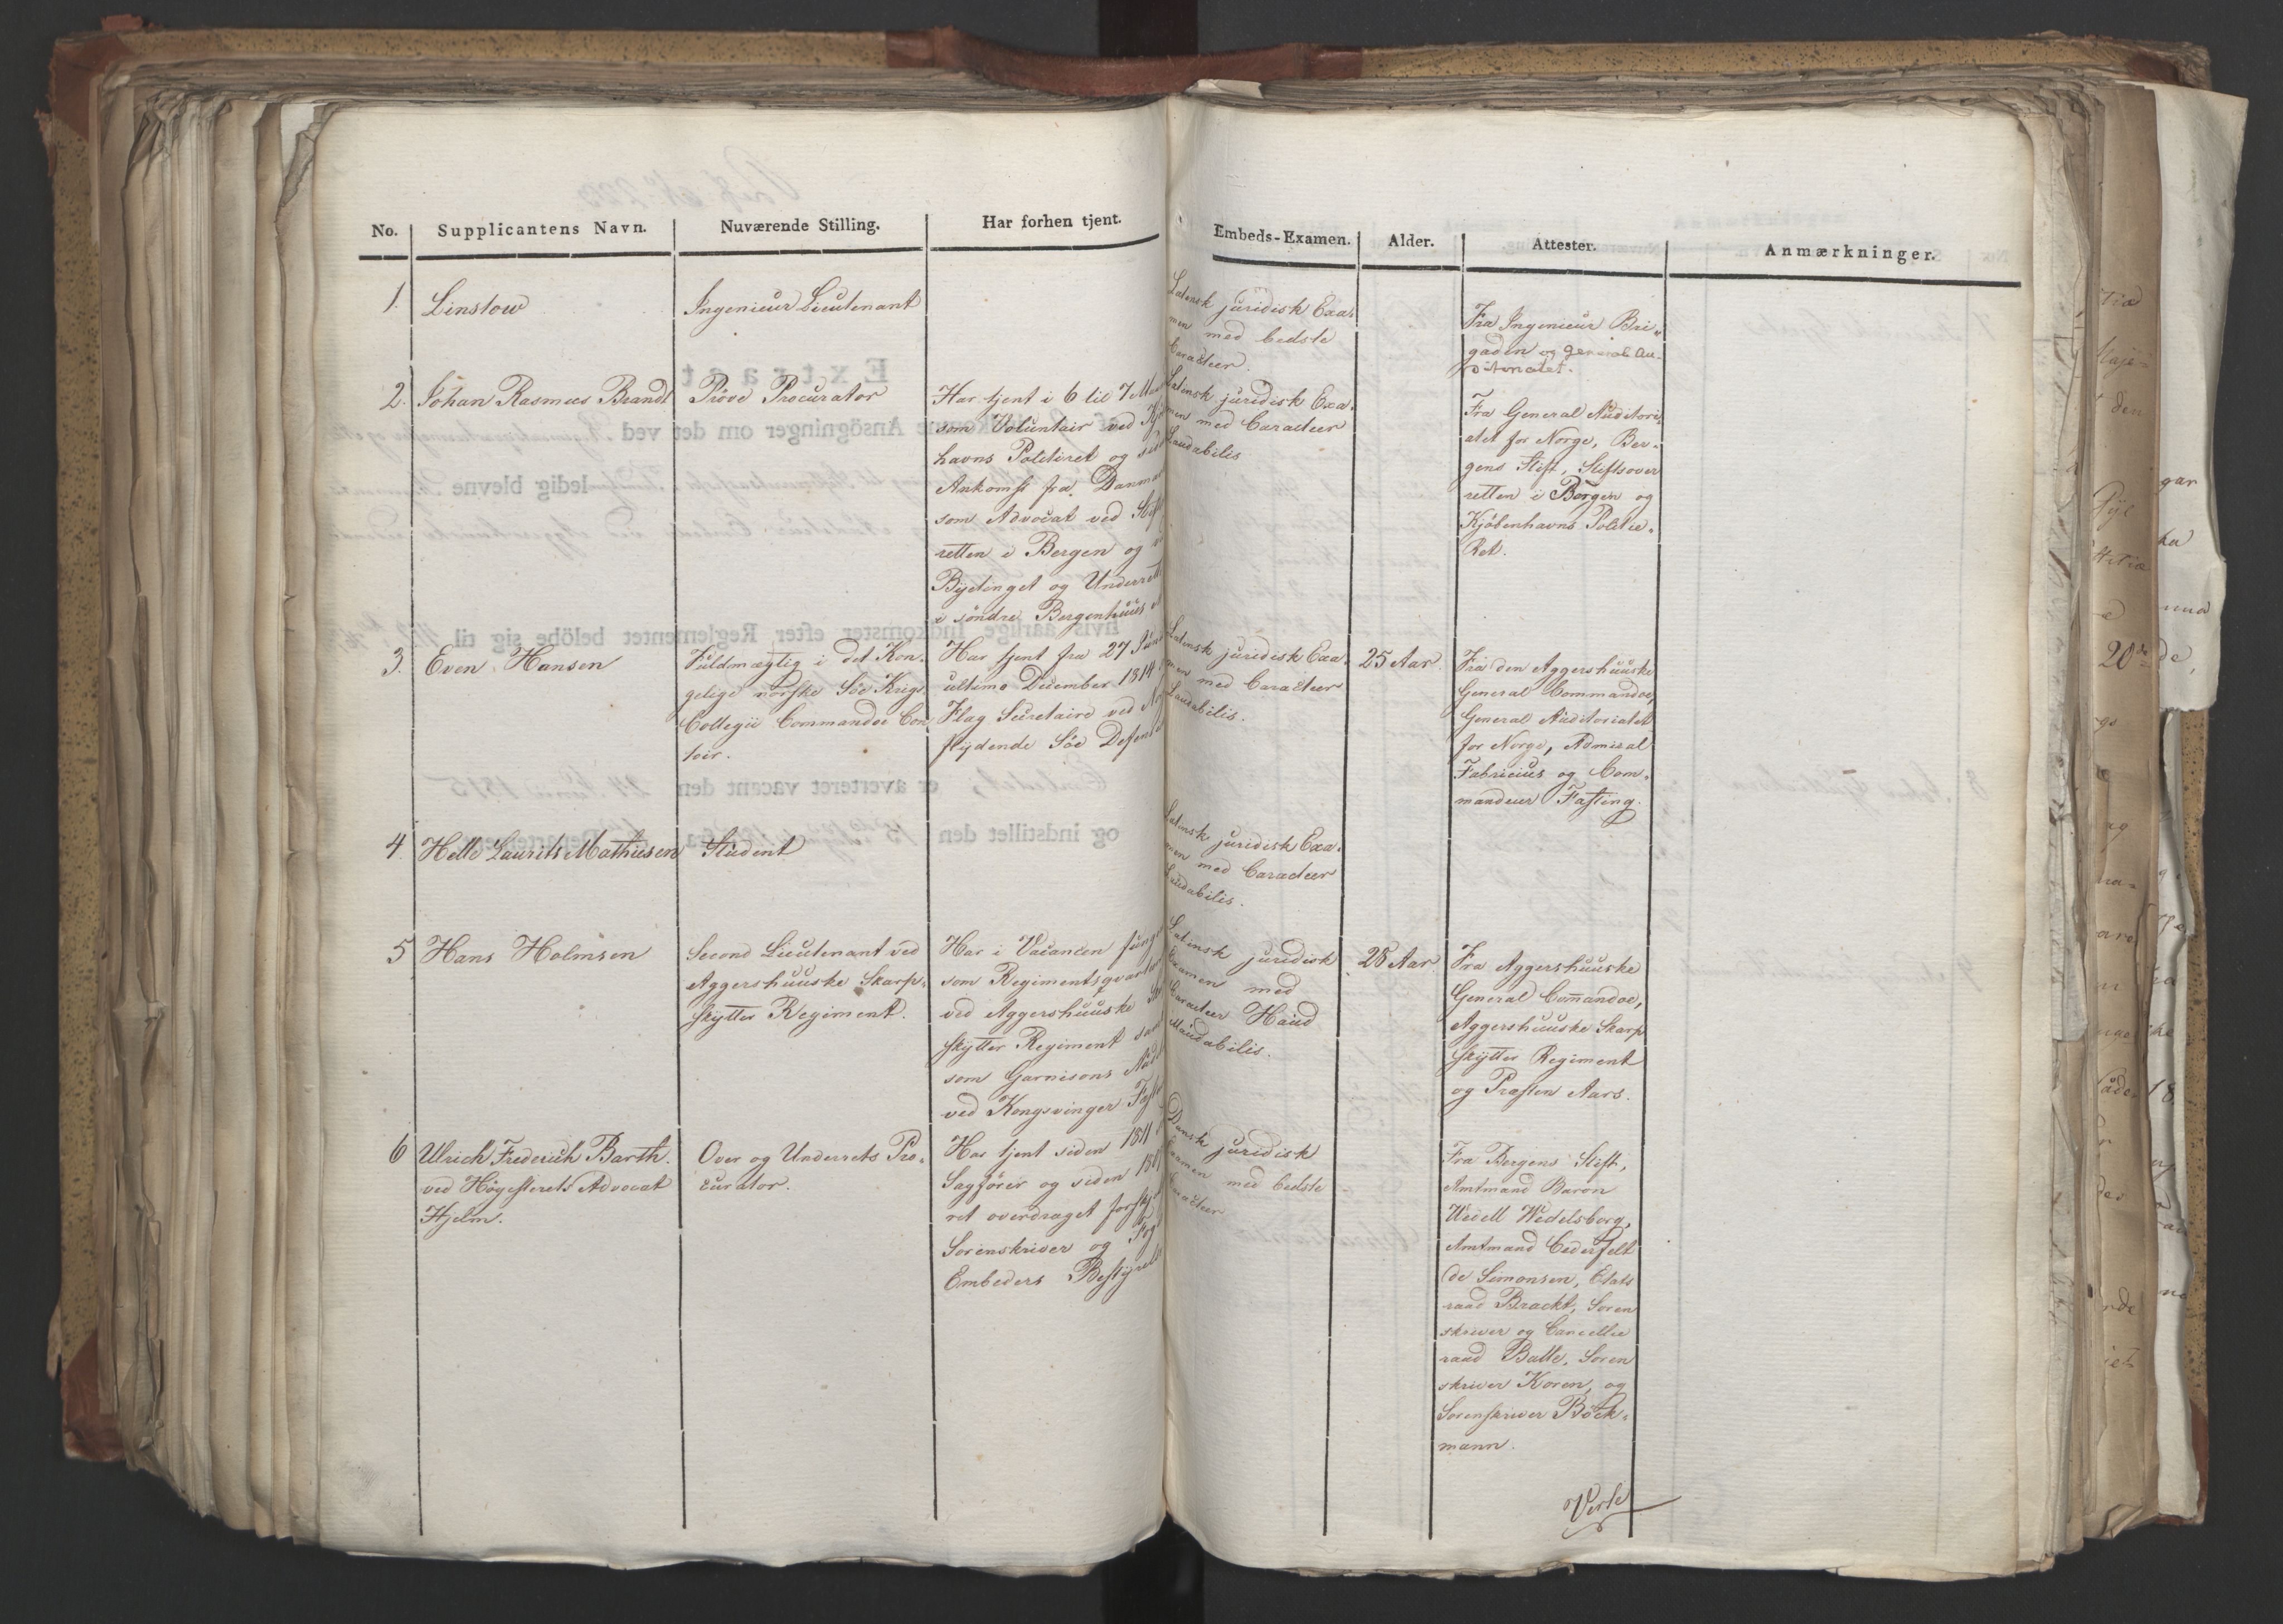 No.
Supplicantens Navn.
Nuværende Stilling.
Har forhen tjent.
Embeds-Examen.
Alder.
Attester.
Anmærkninger.
1.
Linstow
Ingenieur Lieutenant
Latinsk juridisk Exa-
men med bedste
Caracteer.
Fra Ingenieur Bri-
gaden og General Au-
ditoriatet.
2.
Johan Rasmus Brandt
Prøve Procurator
Har tjent i 6 til 7
som Voluntair ved
havns Politiret og
Ankomst fra
som Advocat ved
retten i Bergen og
Bytinget og
i søndre Bergenhuus
Latinsk juridisk Exa-
men med Caracteer
Laudabilis
Fra General Auditori-
atet for Norge, Ber-
gens Stift, Stiftsover
retten i Bergen og
Kjöbenhavns Politie-
Ret.
3.
Even Hansen
Fuldmægtig i det Kon-
gelige norske Söe Krigs
Collegii Commandoe Con
toir.
Har tjent fra 27
ultimo December 1814
Flag Secretaire ved
flydende Söe
Latinsk juridisk Exa-
men med Caracteer
Laudabilis.
25 Aar
Fra den Aggershuuske
General Commandoe,
General Auditoriatet
for Norge, Admiral
Fabricius og Com-
mandeur Fasting.
4.
Helle Laurits Mathiesen
Student
Latinsk juridisk Exa-
men med Caracteer
Laudabilis.
5
Hans Holmsen
Second Lieutenant ved
Aggershuuske Skarp-
skytter Regiment.
Har i Vacancen
som
ved Aggershuuske
skytter Regiment
som Garnisons
ved Kongsvinger
Latinsk juridisk
Examen med
Caracteer Haud
Illaudabilis.
28 Aar
Fra Aggershuuske
General Com̄andoe,
Aggershuuske Skarp
skytter Regiment
og Præsten Aars.
6
Ulrich Frederich Barth.
ved Høyesterets Advocat
Hjelm.
Over og Underrets Pro-
curator.
Har tjent siden 1811
Sagförer og siden
ret overdraget
Sorenskriver og
Embeders
Dansk juridisk
Examen med bedste
Caracteer
Fra Bergens Stift,
Amtmand Baron
Wedell Wedelsborg,
Amtmand Cederfelt
de Simonsen, Etats
raad Brackt, Soren
skriver og Cancellie
raad Balle, Soren
skriver Koren, og
Sorenskriver Böck-
mann.
Verte